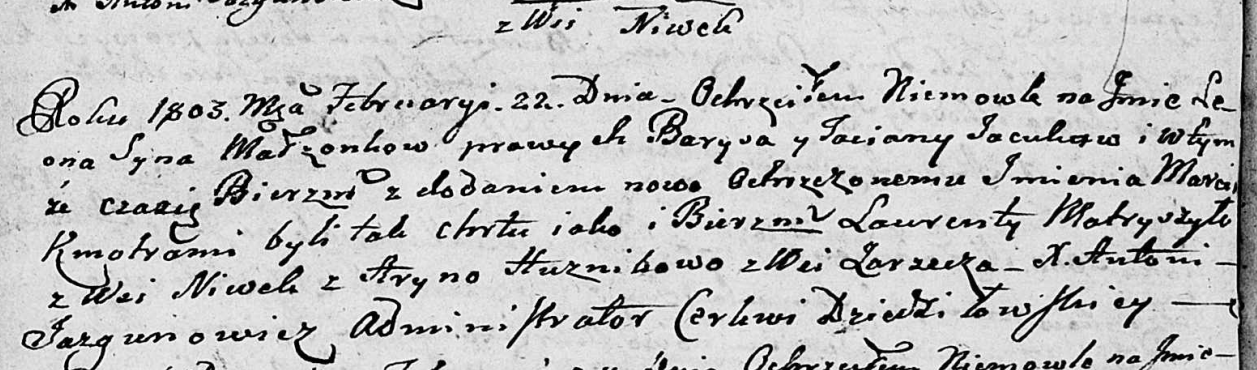 X Antoni
z Wsi Niwek
Roku 1803. Mca Februaryi. 22. Dnia - Ochrzciłem Niemowle na Jmie Le-
ona Syna Małżonkow prawych Barysa y Taciany Jaculow i wtym
że czasie Bierzm z dodaniem nowo Ochrzczonemu Jmienia Marci
Kmotrami byli tak chrtu iako i Bierzm Laurenty Matryszyło
z Wsi Niwek z Aryno Huznikowo z Wsi Zarzecza - X. Antoni -
Jazgunowicz Administrator Cerkwi Dziedziłowskiey
Ochrzciłem Niemowle na Jmie-